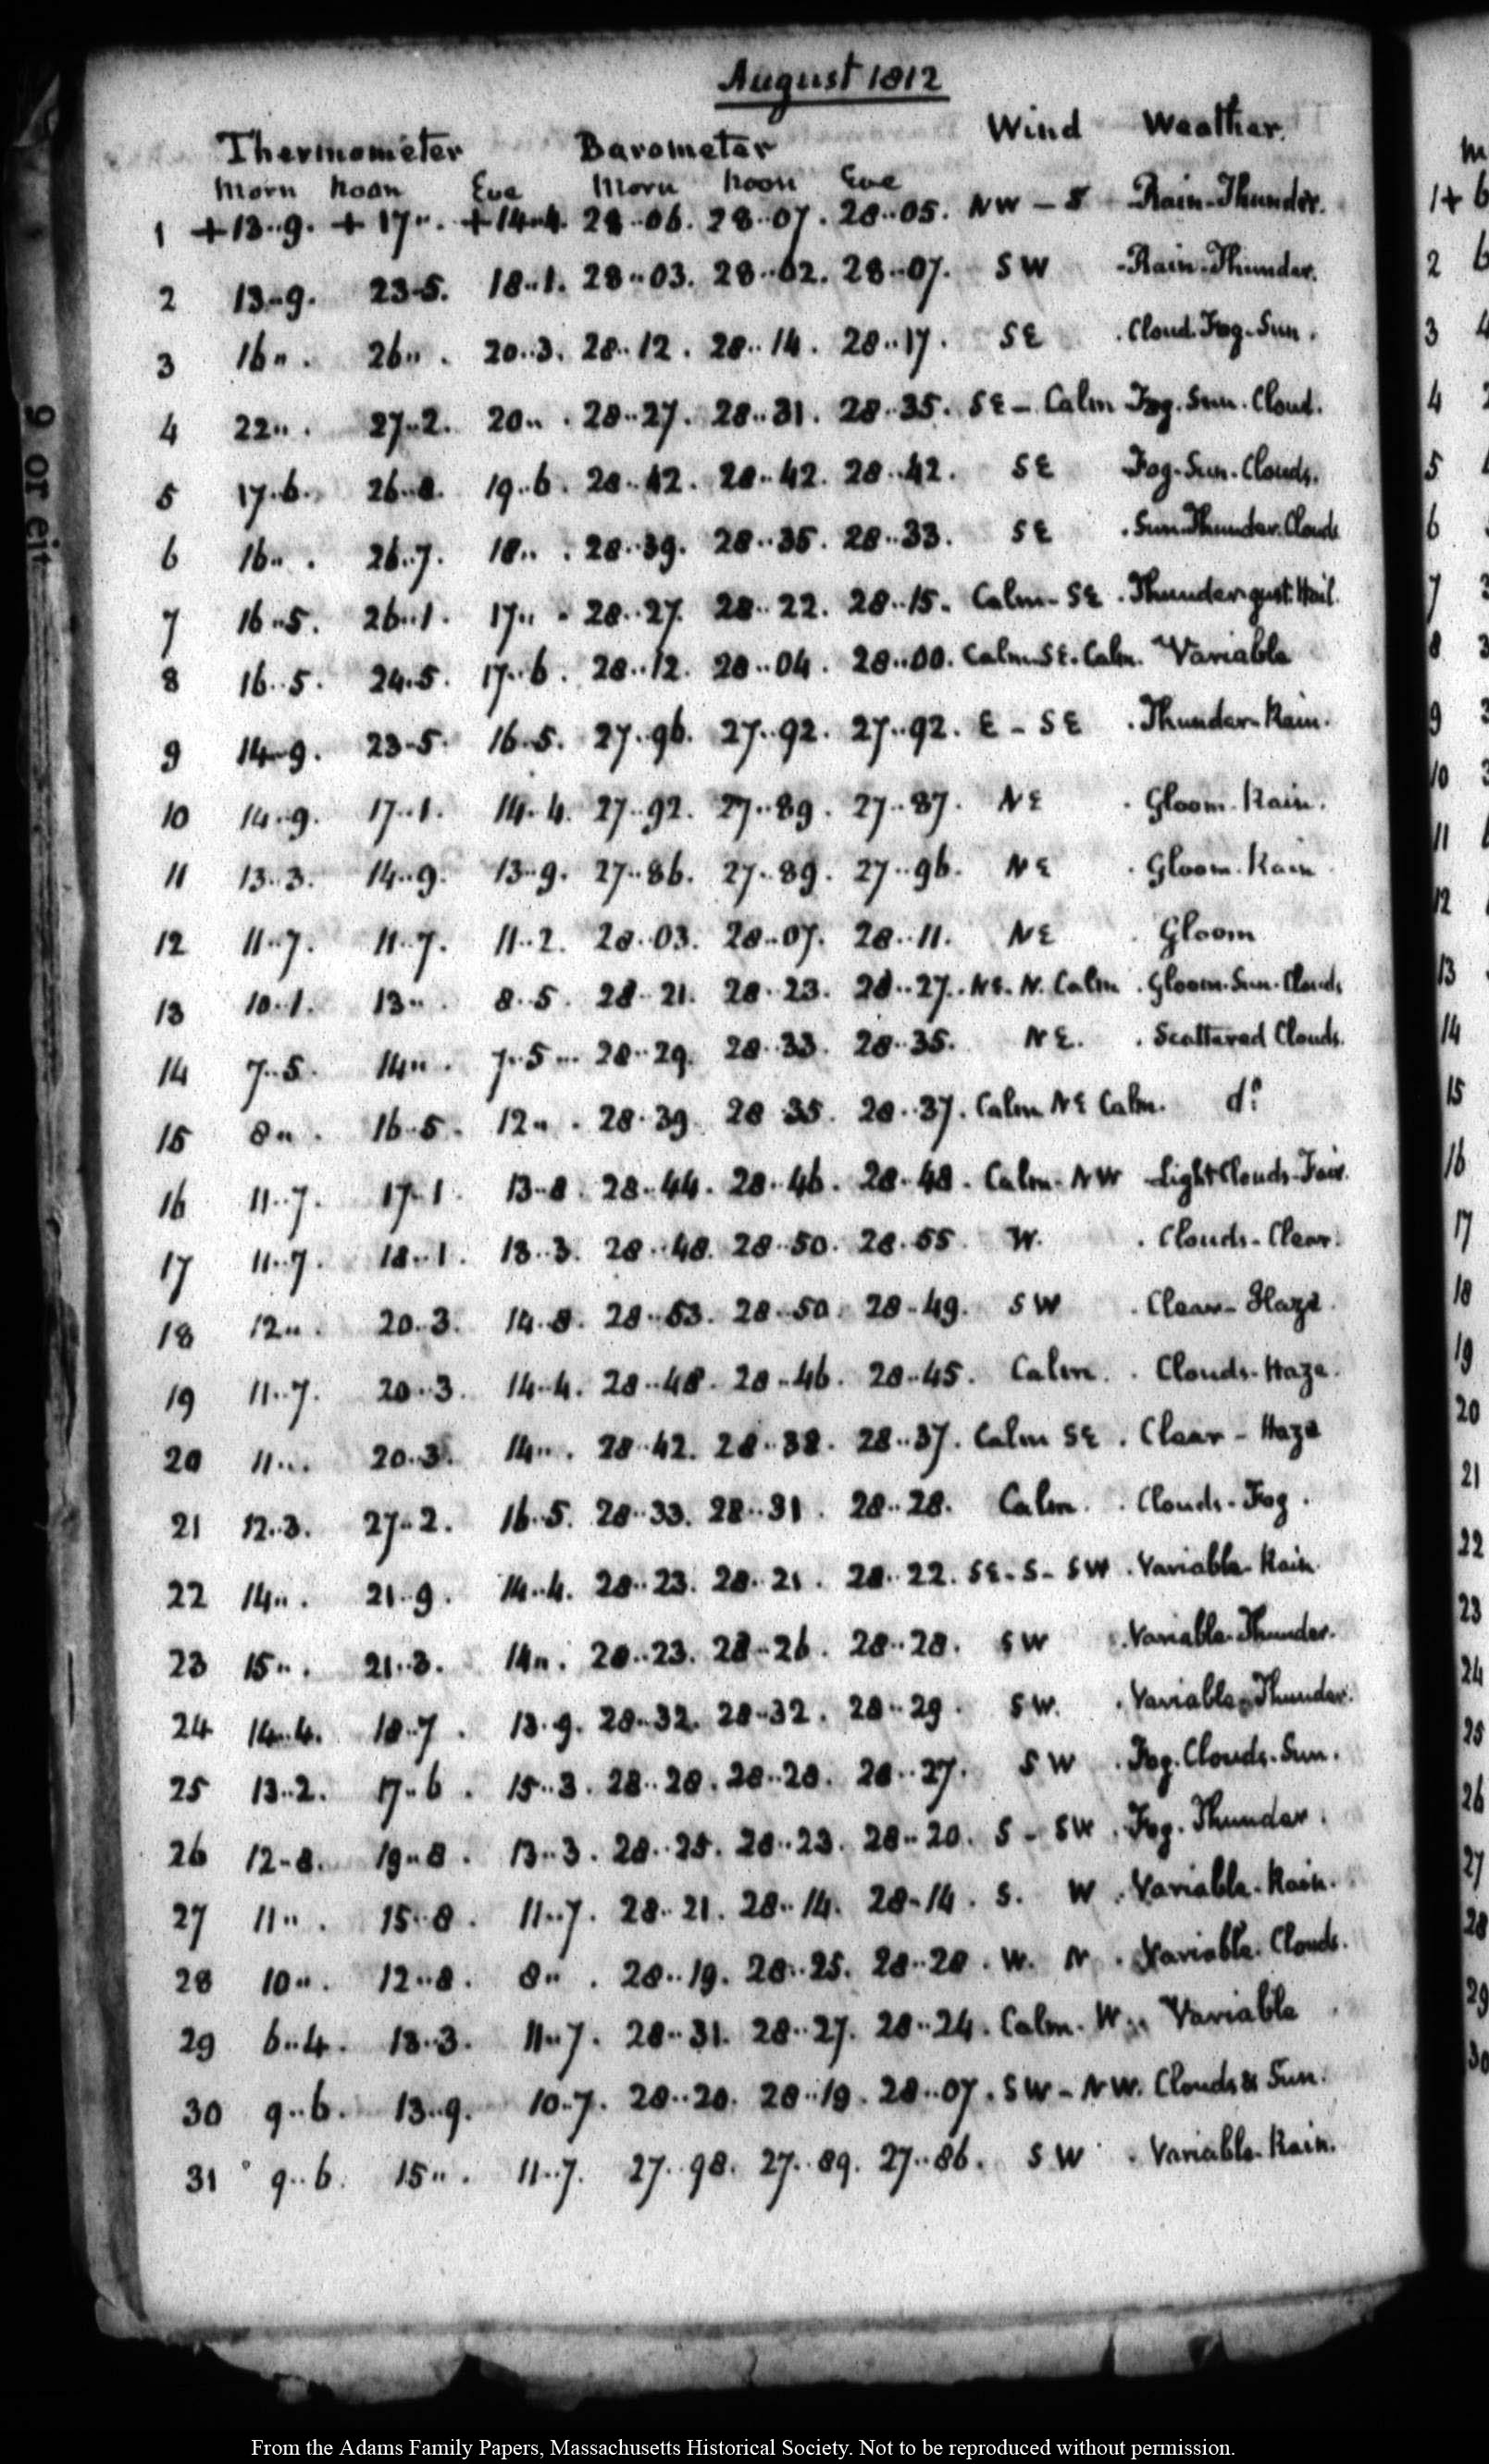 August 1812
Thermometer Barometer Wind Weather.
Morn Noon Eve Morn Noon Eve
1 +13..9. +17.. . +14..4. 28..06. 28..07. 28..05. NW - S Rain-Thunder.
2 13..9. 23..5. 18..1. 28..03. 28..02. 28..07. SW Rain-Thunder.
3 16.. . 26.. . 20..3. 28..12. 28..14. 28..17. SE Cloud. Fog. Sun.
4 22.. . 27..2. 20.. . 28..27. 28..31. 28..35. SE - Calm Fog. Sun. Cloud.
5 17..6. 26..8. 19..6. 28..42. 28..42. 28..42. SE Fog. Sun. Clouds.
6 16.. . 26..7. 18.. . 28..39. 28..35. 28..33. SE Sun. Thunder. Clouds
7 16..5. 26..1. 17.. . 28..27. 28..22. 28..15. Calm - SE. Thunder gust. Hail.
8 16..5. 24..5. 17..6. 28..12. 28..04. 28..00. Calm. SE. Calm. Variable
9 14..9. 23..5. 16..5. 27..96. 27..92. 27..92. E - SE Thunder-Rain.
10 14..9. 17..1. 14..4. 27..92. 27..89. 27..87. NE Gloom. Rain.
11 13..3. 14..9. 13..9. 27..86. 27..89. 27..96. NE Gloom. Rain
12 11..7. 11..7. 11..2. 28..03. 28..07. 28..11. NE Gloom
13 10..1. 13.. . 8..5. 28..21. 28..23. 28..27. NE. N. Calm Gloom. Sun. Clouds
14 7..5. 14.. . 7..5. 28..29. 28..33. 28..35. NE. Scattered Clouds.
15 8.. . 16..5. 12.. . 28..39. 28..35. 28..37. Calm NE Calm. do
16 11..7. 17..1. 13..8. 28..44. 28..46. 28..48. Calm - NW Light Clouds-Fair.
17 11..7. 18..1. 13..3. 28..48. 28..50. 28..55. W. Clouds - Clear.
18 12.. . 20..3. 14..8. 28..53. 28..50. 28..49. SW Clear - Haze.
19 11..7. 20..3. 14..4. 28..48. 28..46. 28..45. Calm. Clouds-Haze.
20 11.. . 20..3. 14.. . 28..42. 28..38. 28..37. Calm SE. Clear - Haze
21 12..3. 27..2. 16..5. 28..33. 28..31. 28..28. Calm. Clouds-Fog.
22 14.. . 21..9. 14..4. 28..23. 28..21. 28..22. SE - S - SW. Variable-Rain.
23 15.. . 21..3. 14.. . 28..23. 28..26. 28..28. SW Variable-Thunder.
24 14..4. 18..7. 13..9. 28..32. 28..32. 28..29. SW. Variable, Thunder.
25 13..2. 17..6. 15..3. 28..28. 28..28. 28..27. SW Fog. Clouds. Sun.
26 12..8. 19..8. 13..3. 28..25. 28..23. 28..20. S - SW. Fog. Thunder.
27 11.. . 15..8. 11..7. 28..21. 28..14. 28..14. S. W. Variable-Rain.
28 10.. . 12..8. 8.. . 28..19. 28..25. 28..28. W. N. Variable. Clouds.
29 6..4. 13..3. 11..7. 28..31. 28..27. 28..24. Calm. W. Variable
30 9..6. 13..9. 10..7. 28..20. 28..19. 28..07. SW - NW. Clouds & Sun.
31 9..6. 15.. . 11..7. 27..98. 27..89. 27..86. SW. Variable-Rain.
From the Adams Family Papers, Massachusetts Historical Society. Not to be reproduced without permission.